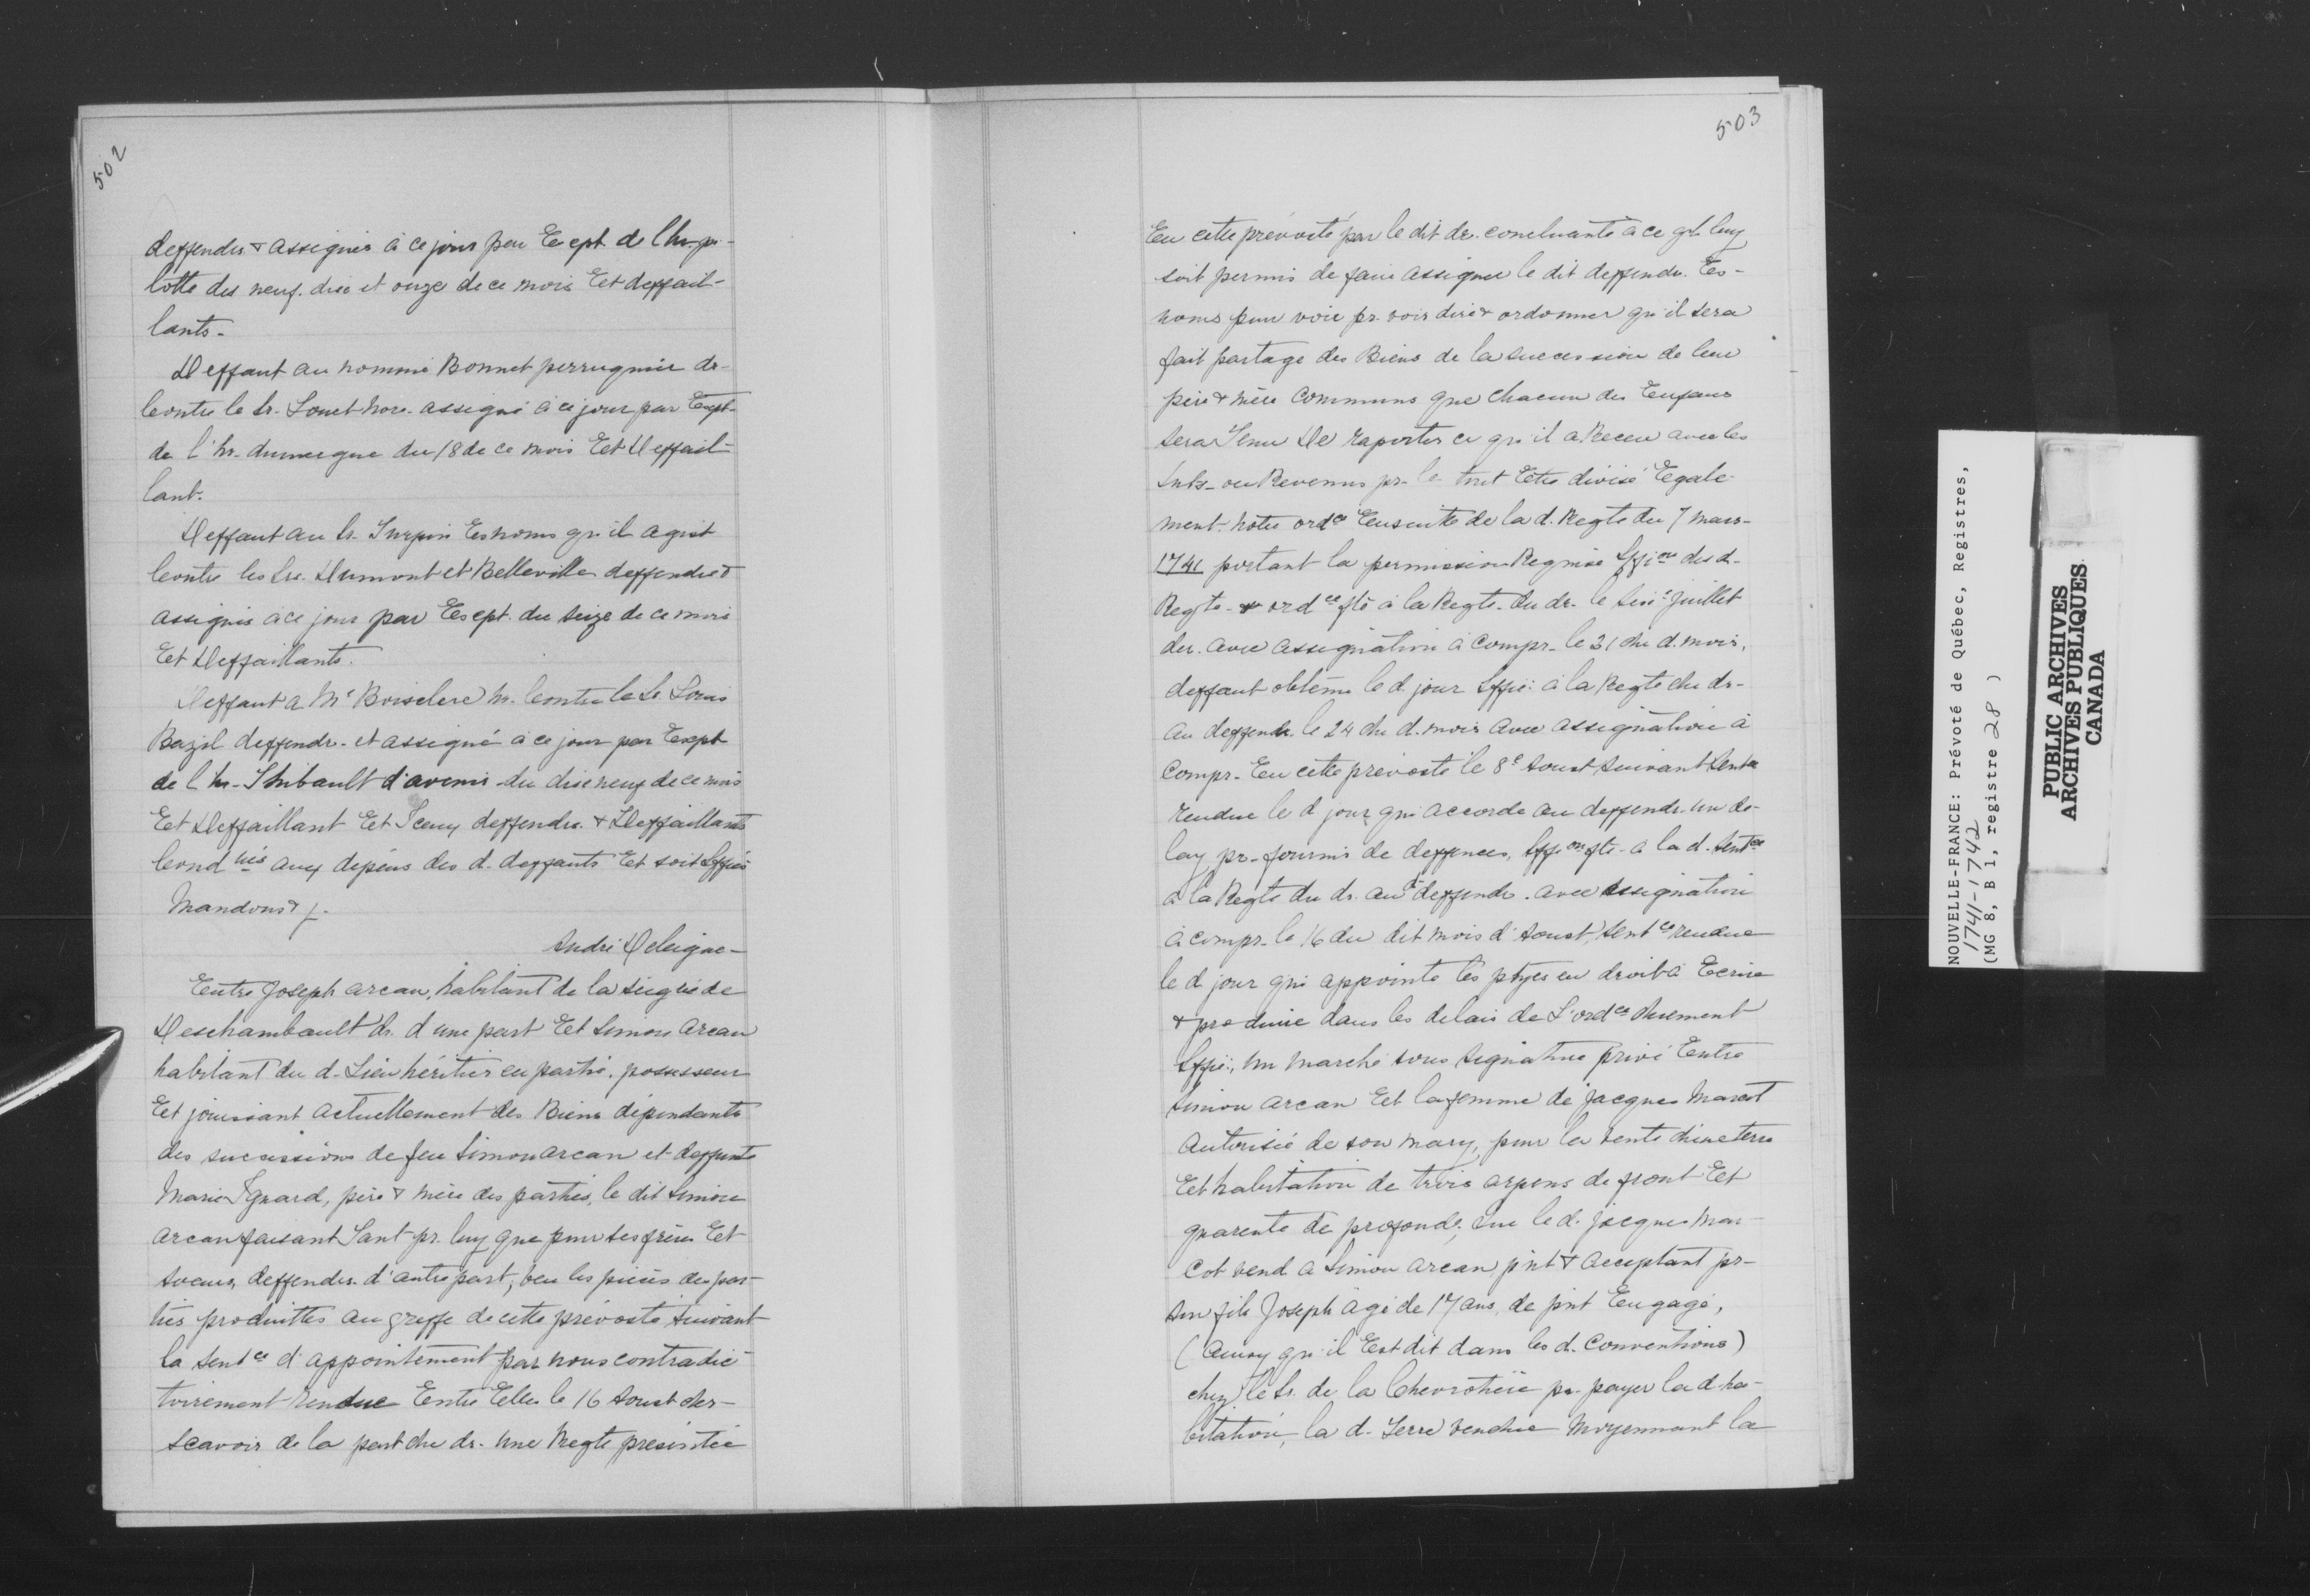 502
deffendrs & assignés à ce jour par Eexpt. de l'hr. pi-
lotte des neuf. dix et onze de ce mois Eet deffail-
lants.
Deffaut au nommé Bonnet perruquier dr.
Contre le Sr. Louet nore. assigné à ce jour par Eexpt.
de l'hr. dumergue du 18 de ce mois Eet Deffail-
lant.
Deffaut au Sr. Turpin Es noms qu'il agist
Contre les Srs. Dumont et Belleville deffendrs &
assignés à ce jour par Eexpt. du seize de ce mois
Eet Deffaillants.
Deffaut a Me Boisclerc hr. Contre le Sr. Louis
Bazil deffendr. et assigné à ce jour par Eexpt
de l'hr. Thibault d'avenir du dixe neuf de ce mois
Eet Deffaillant Eet Iceux deffendrs. & Deffaillants
Cond nés aux dépens des d. deffauts Eet soit Siffié
Mandons &.
André Deleigne
Eentre Joseph arcan, habitant de la seigrie de
Deschambault dr. d'une part Eet Simon arcan
habitant du d. Lieu héritier en partie, possesseur
Eet jouissant actuellement des Biens dépendants
des successions de feu Simon arcan et deffunte
Marie Ignard, père & mère des parties, le dit Simon
arcan faisant Tant pr. luy que pour ses frères Eet
soeurs, deffendrs. d'autre part, veu les pièces des par-
ties produittes au greffe de cette prévosté suivant
la Sentce d'appointement par nous contradic-
toirement rendue Eentre Eelles le 16 aoust der-
scavoir de la part du dr. Une Reqte présentée
503
Een cette prévosté par le dit dr. concluante à ce ql. luy
soit permis de faire assigner le dit deffendr. Ees-
noms pour voir pr. voir dire & ordonner qu'il sera
fait partage des Biens de la succession de leur
père & mère communs que chacun des Eenfans
sera Tenu De raporter ce qu'il a Receu avec les
Ints. ou Revenus pr. le tout Eetre divisé Eegale-
ment. notre ordce Eensuitte de la d. Reqte du 7 mars
1741 portant la permission Requise Siffion des d.
Reqte. & ordce fte à la Reqte. du dr. le juillet
der. avec assignation à Compr. le 21 du d. mois,
deffaut obtenu le d. jour Siffié à la Reqte du dr.
au deffendr. le 24 du d. mois avec assignation à
Compr. Een cette prévosté le 8e aoust suivant Sentce
rendue le d jour qui accorde au deffendr. un de-
lay pr. fournir de deffences, Siffion fte. à la d. Sentce
à la Reqte du dr. au d. deffendr. avec assignation
à compr. le 16 du dit mois d'aoust, Sentce rendue
le d jour qui appointe les ptyes en droit à Eecrire
& produire dans les delais de L'ordce duement
Siffié, un marché sous signature privé Eentre
Simon arcan Eet la femme de Jacques Marcot
autorisée de son mary, pour la vente d'une terre
Eet habitation de trois arpens de front Eet
quarente de profondr. que le d. jacques Mar-
cot vend a Simon arcan pnt & acceptant pr-
son fils Joseph âgé de 17 ans, de pnt Eengagé,
(Ainsy qu'il Eest dit dans les d. Conventions)
chez le Sr. de la Chevrotière pr. payer la d. ha-
bitation, la d. Terre vendue Moyennant la
NOUVELLE-FRANCE: Prévoté de Québec, Registres,
1741-1742
(MG 8, B 1, registre 28 )
PUBLIC ARCHIVES
ARCHIVES PUBLIQUES
CANADA